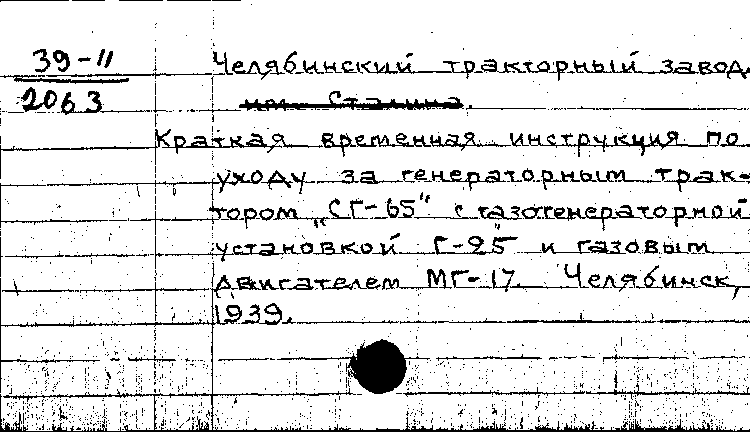 39-11
2063
Челябинский тракторный завод
им. Сталина.
Краткая временная инструкция по
уходу за генераторным трак-
тором „СГ-65" с газогенераторной
установкой Г-25 и газовым
двигателем МГ-17. Челябинск,
1939.